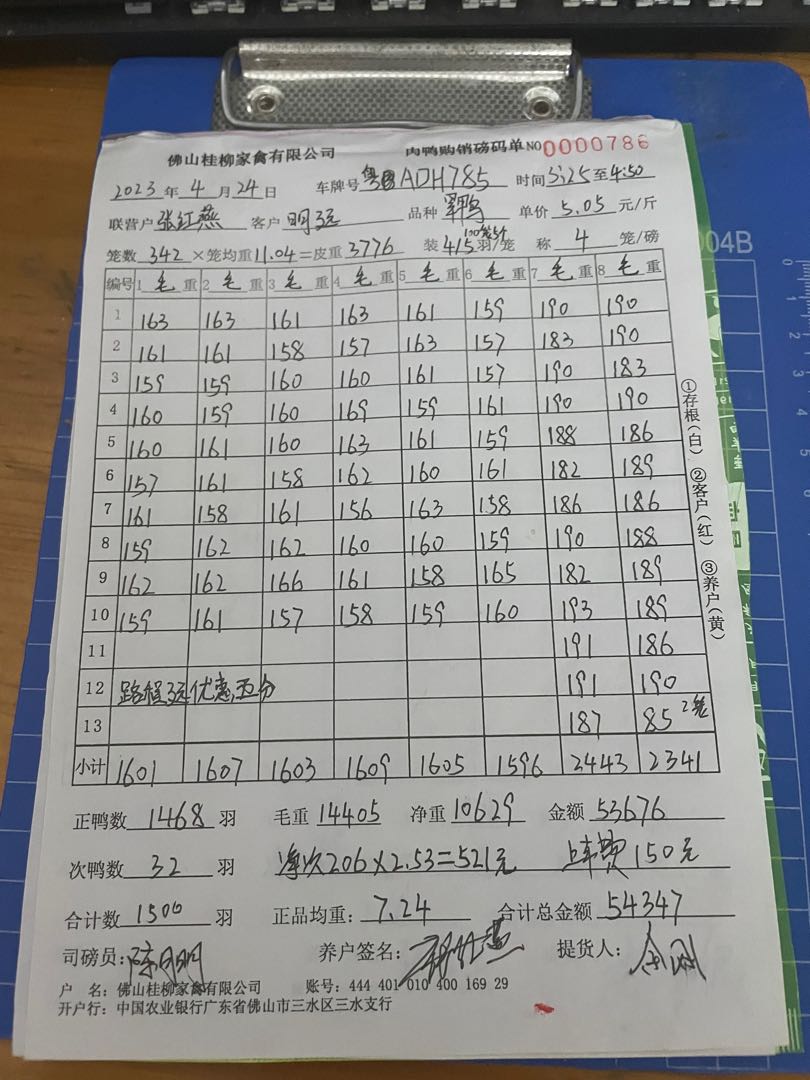 佛山桂柳家禽有限公司 肉鸭购销磅码单 NO 0000786
2023 年 4 月 24 日 车牌号 粤ADH785 时间 3:25 至 4:50
联营户 张红燕 客户 明远 品种 单价 5.05 元/斤
100笼54
笼数 342 ×笼均重 11.04 =皮重 3776 装 4/5 羽/笼 称 4 笼/磅
编号 1 毛 重 2 毛 重 3 毛 重 4 毛 重 5 毛 重 6 毛 重 7 毛 重 8 毛 重
1 163 163 161 163 161 159 190 190
2 161 161 158 157 163 157 183 190
3 159 159 160 160 161 157 190 183
4 160 159 160 169 159 161 190 190
5 160 161 160 163 161 159 188 186
6 157 161 158 162 160 161 182 189
7 161 158 161 156 163 158 186 186
8 159 162 162 160 160 159 190 188
9 162 162 166 161 158 165 182 189
10 159 161 157 158 159 160 193 189
11 191 186
12 路程远优惠五分 191 190
13 187 85 2笼
小计 1601 1607 1603 1609 1605 1596 2443 2341
①存根(白) ②客户(红) ③养户(黄)
正鸭数 1468 羽 毛重 14405 净重 10629 金额 53676
次鸭数 32 羽 净次206×2.53=521元 上车费150元
合计数 1500 羽 正品均重: 7.24 合计总金额 54347
司磅员: 养户签名: 提货人:
户 名: 佛山桂柳家禽有限公司 账号: 444 401 010 400 169 29
开户行: 中国农业银行广东省佛山市三水区三水支行
004B